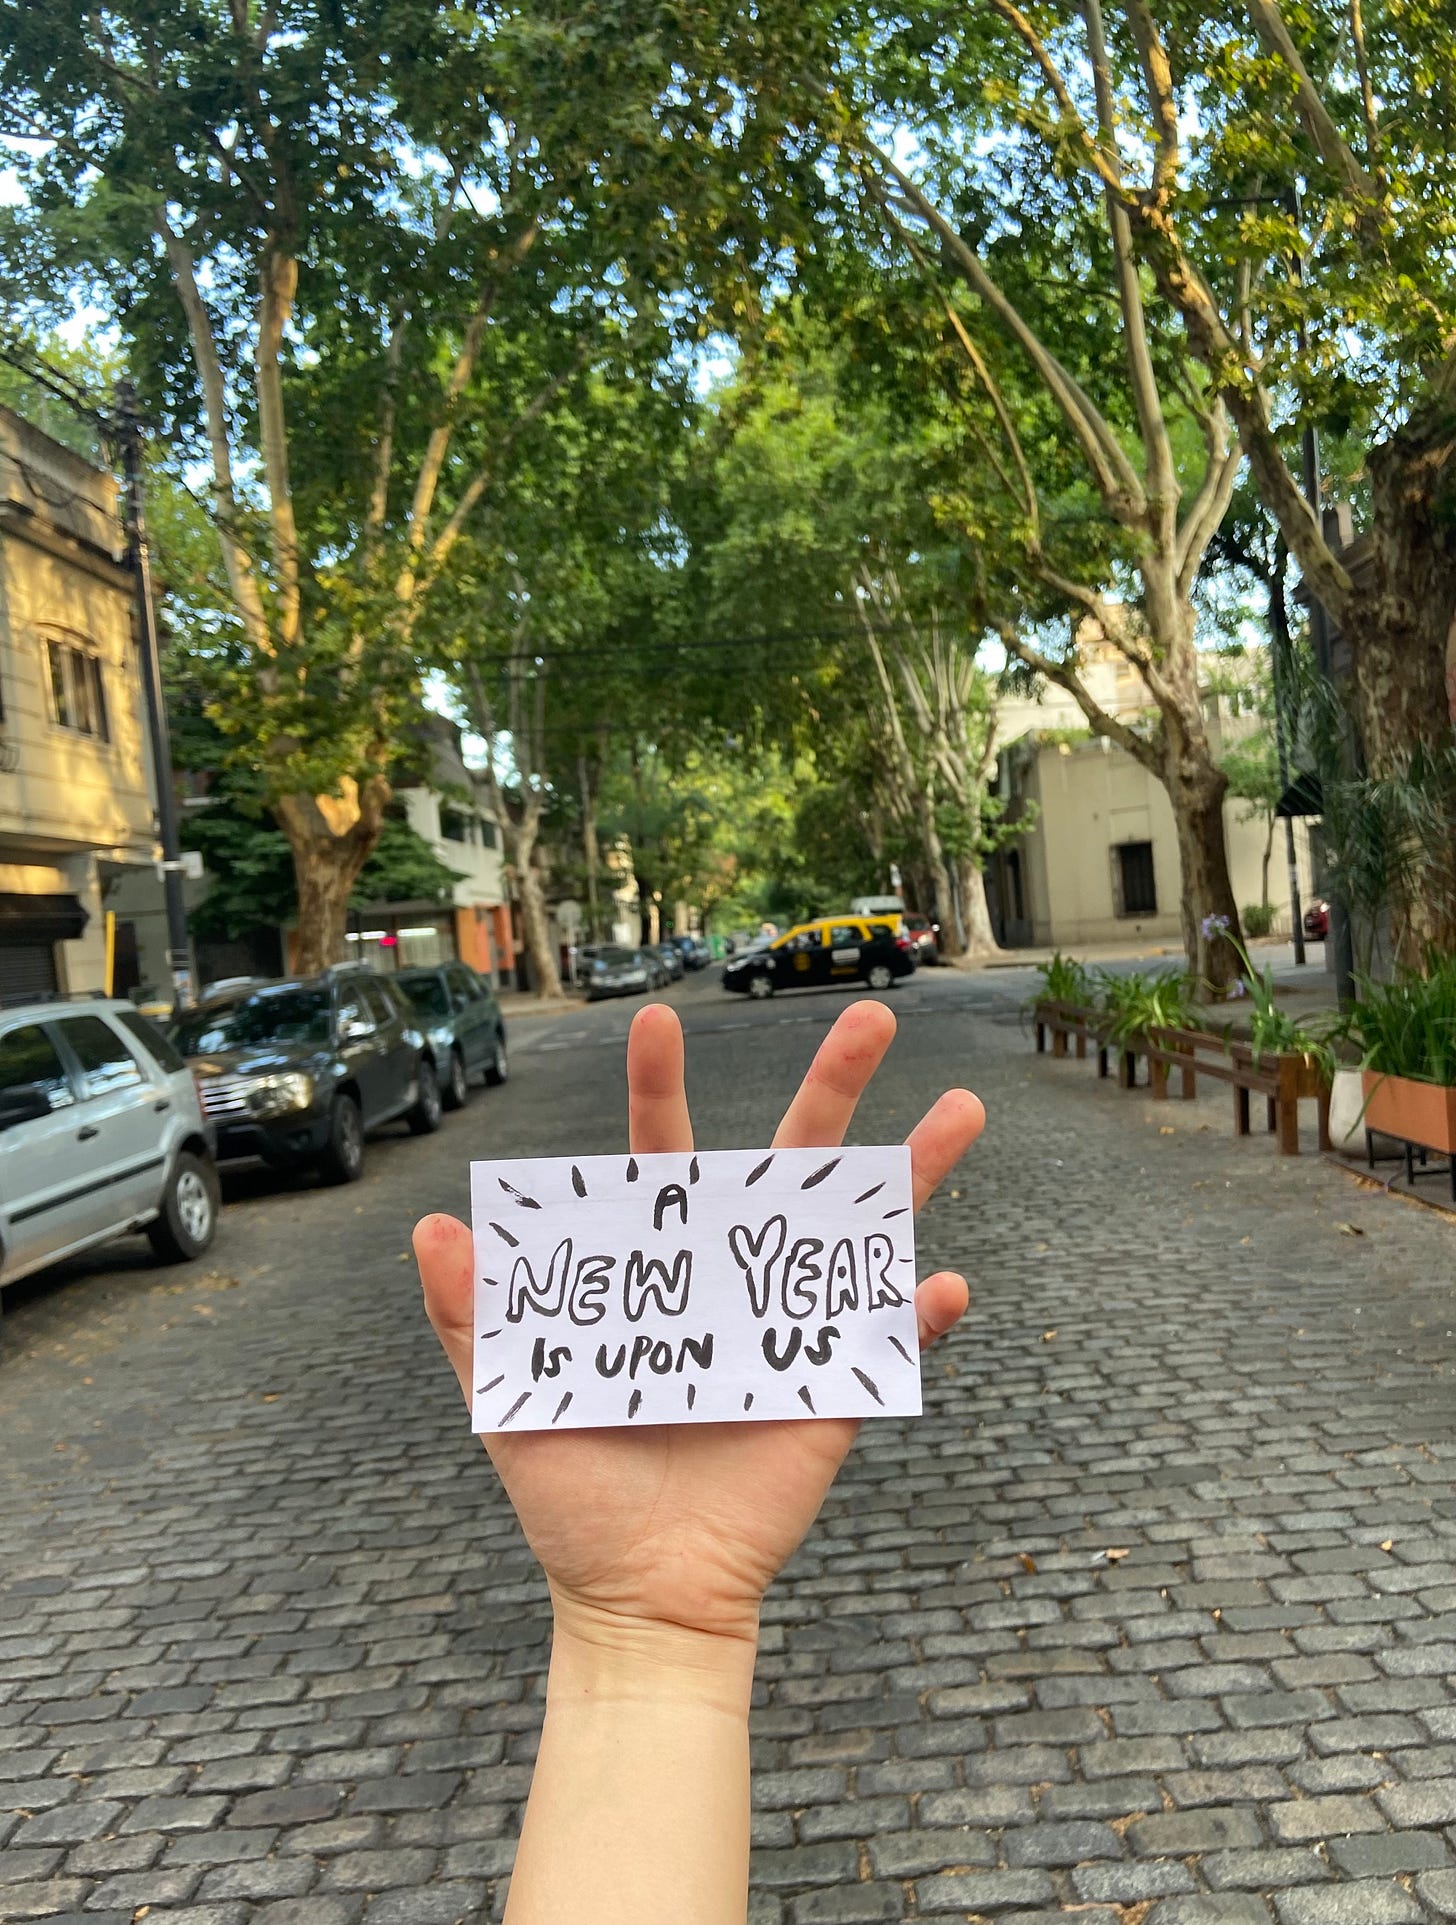 A
NEW YEAR
IS UPON US